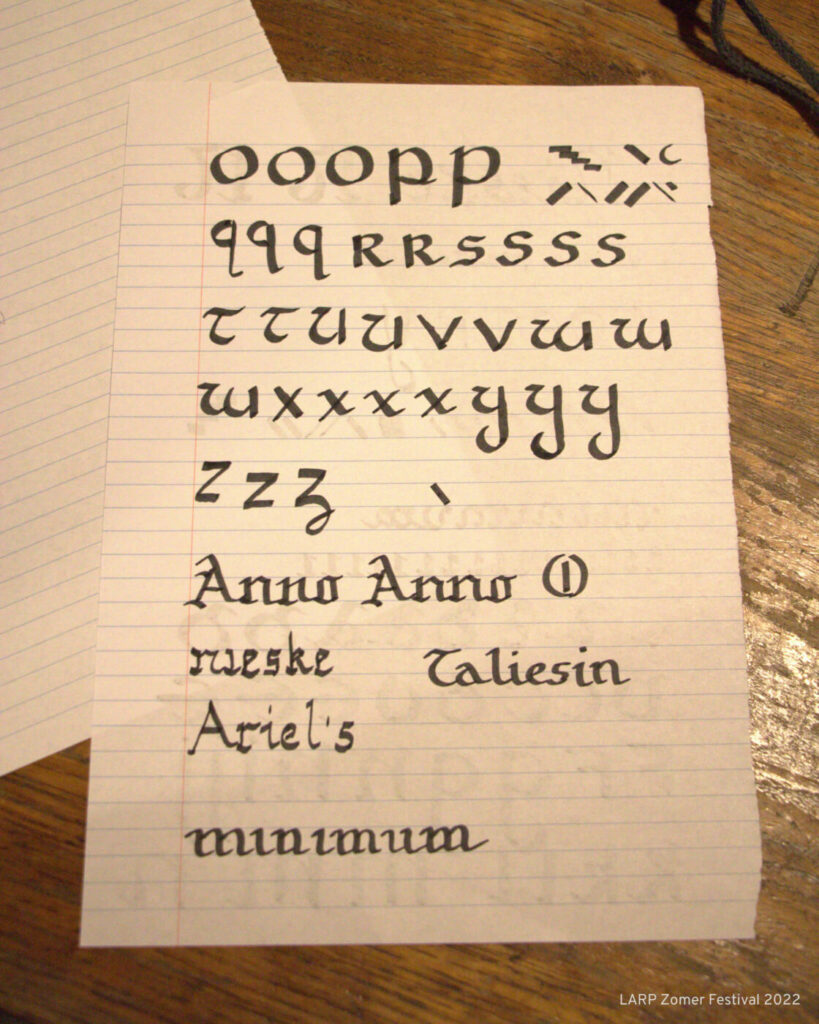 ooopp
qqqRRssss
ττuuvvww
wxxxxyyy
zzz
Anno Anno O
Taliesin
Ariel's
minimum
LARP Zomer Festival 2022